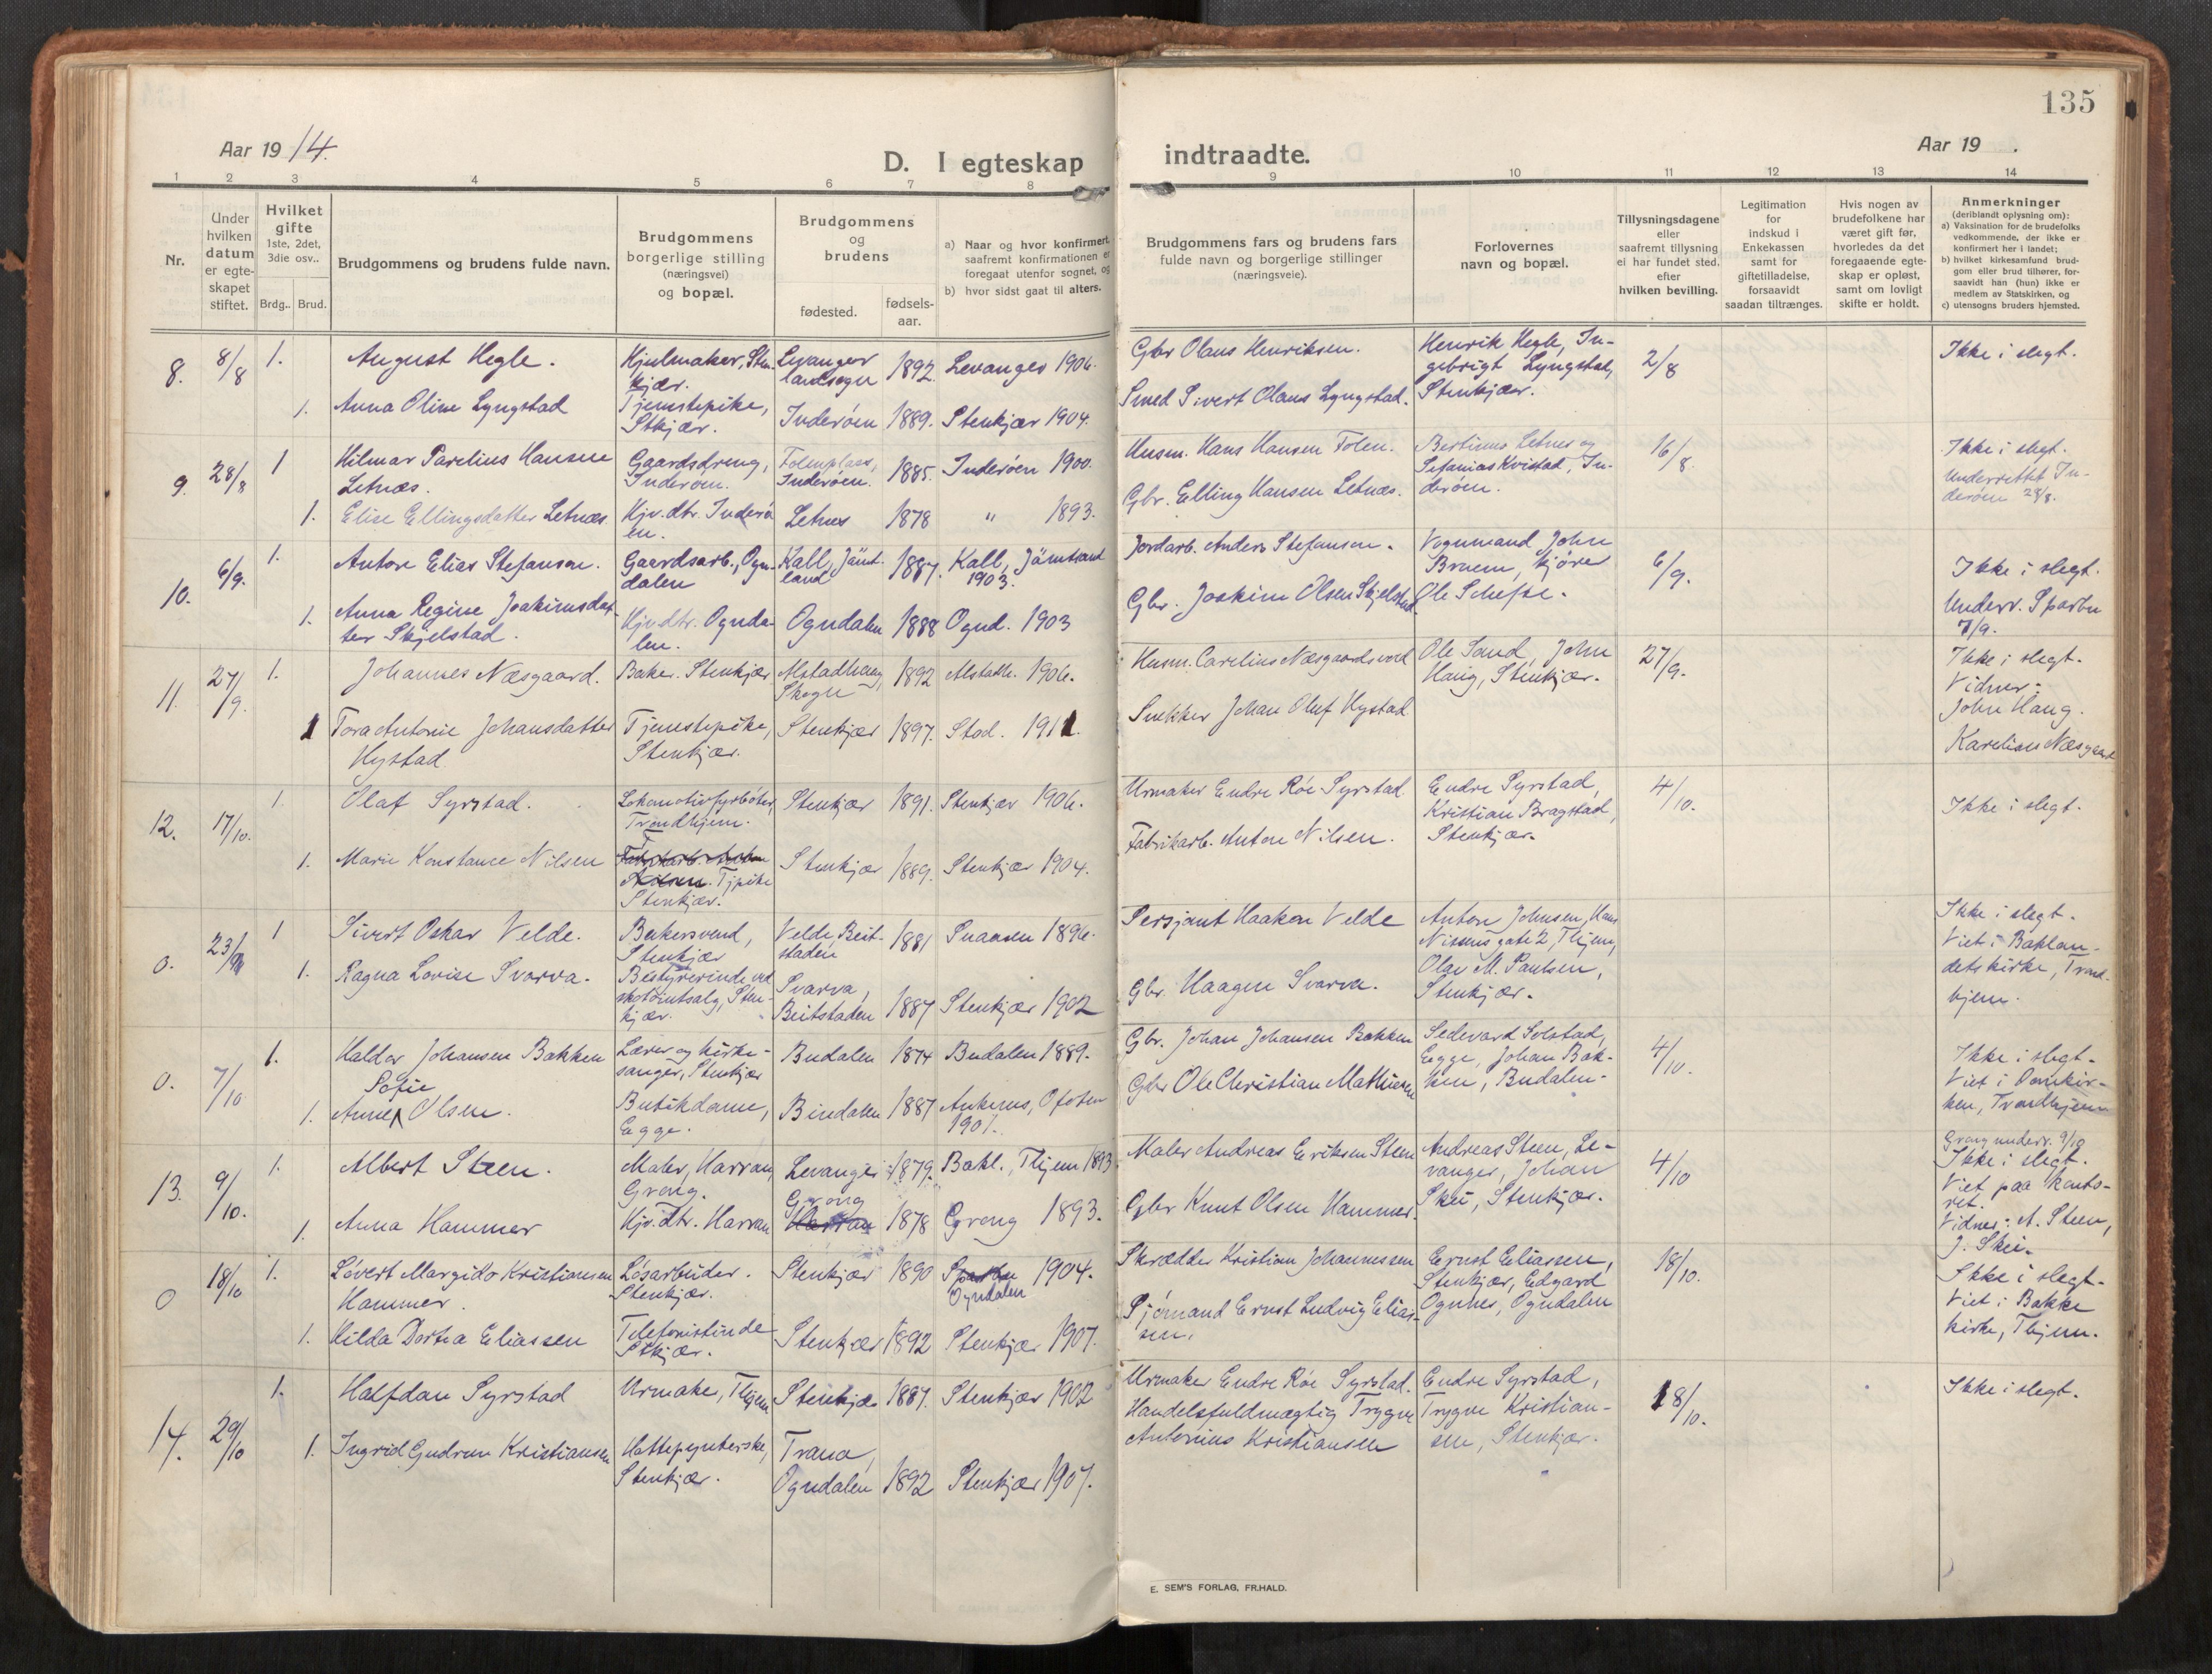 135
Aar 19 14.
D. I egteskap
indtraadte.
Aar 19 .
1 2 3 4 5 6 7 8 9 10 11 12 13 14
Nr.
Under
hvilken
datum
er egte-
skapet
stiftet.
Hvilket
gifte
1ste, 2det,
3die osv..
Brdg.. Brud.
Brudgommens og brudens fulde navn.
Brudgommens
borgerlige stilling
(næringsvei)
og bopæl.
Brudgommens
og
brudens
fødested.
fødsels-
aar.
a) Naar og hvor konfirmert,
saafremt konfirmationen er
foregaat utenfor sognet, og
b) hvor sidst gaat til alters.
Brudgommens fars og brudens fars
fulde navn og borgerlige stillinger
(næringsveie).
Forlovernes
navn og bopæl.
Tillysningsdagene
eller
saafremt tillysning
ei har fundet sted.
efter
hvilken bevilling.
Legitimation
for
indskud i
Enkekassen
samt for
giftetilladelse,
forsaavidt
saadan tiltrænges.
Hvis nogen av
brudefolkene har
været gift før,
hvorledes da det
foregaaende egte-
skap er opløst,
samt om lovligt
skifte er holdt.
Anmerkninger
(deriblandt oplysning om):
a) Vaksination for de brudefolks
vedkommende, der ikke er
konfirmert her i landet;
b) hvilket kirkesamfund brud-
gom eller brud tilhører, for-
saavidt han (hun) ikke er
medlem av Statskirken, og
c) utensogns bruders hjemsted.
8. 8/8 1. August Hegle.
Hjulmaker, Sten-
kjær.
Levanger
landsogn
1892. Levanger 1906.
Gbr Olaus Henriksen.
Henrik Hegle, In-
gebrigt Lyngstad,
Stenkjær.
2/8
Ikke i slegt.
1. Anna Oline Lyngstad
Tjenestepike,
Stkjær.
Inderøen 1889. Stenkjær 1904.
Smed Sivert Olaus Lyngstad.
9. 28/8 1 Hilmar Parelius Hansen
Letnæs.
Gaardsdreng,
Inderøen.
Folenplass,
Inderøen.
1885. Inderøen 1900.
Husm. Hans Hansen Folen.
Bertinus Letnes og
Sefanias Kvistad, In-
derøen.
16/8.
Ikke i slegt.
Underrettet In-
derøen 28/8.
1. Elise Ellingsdatter Letnæs.
Gbr. dtr. Inderø-
en.
Letnes 1878 " 1893.
Gbr. Elling Hansen Letnæs.
10. 6/9. 1. Anton Elias Stefanson.
Gaardsarb., Ogn-
dalen
Kall, Jämt-
land
1887. Kall, Jämtland
1903.
Jordarb. Anders Stefanson.
Vognmand John
Bruem, kjører
Ole Schefte.
6/9.
Ikke i slegt.
Underr. Sparbu
7/9.
1. Anna Regine Joakimsdat-
ter Skjelstad.
Hjv. dtr. Ognda-
len.
Ogndalen 1888 Ognd. 1903
Gbr. Joakim Olsen Skjelstad.
11. 27/9. 1. Johannes Næsgaard.
Baker. Stenkjær
Alstadhaug,
Skogn
1892 Alstadh. 1906.
Husm. Carelius Næsgaardsvald
Ole Sand, John
Haug, Stenkjær.
27/9.
Ikke i slegt.
Vidner:
John Haug.
Karelius Næsgaard
1 Tora Antonie Johansdatter
Hystad
Tjenestepike,
Stenkjær.
Stenkjær 1897. Stod. 1911.
Snekker Johan Oluf Hystad
12. 17/10. 1. Olaf Syrstad.
Lokomotivfyrbøter,
Trondhjem.
Stenkjær 1891. Stenkjær 1906.
Urmaker Endre Røe Syrstad.
Endre Syrstad,
Kristian Bragstad,
Stenkjær.
4/10.
Ikke i slegt.
1. Marie Konstance Nilsen
Fabrikarb. Anton
Nilsen. Tjpike
Stenkjær.
Stenkjær 1889. Stenkjær 1904.
Fabrikarb. Anton Nilsen.
0. 23/9 1 Sivert Oskar Velde.
Bakersvend,
Stenkjær
Velde Beit-
staden
1881 Snaasen 1896.
Sersjant Haakon Velde
Anton Johnsen, Hans
Nissens gate 2, Thjem,
Olav M. Paulsen,
Stenkjær.
Ikke i slegt.
Viet i Baklan-
dets kirke, Trond-
hjem.
1. Ragna Lovise Svarva.
Bestyrerinde ved
skotøiutsalg, Sten-
kjær.
Svarva,
Beitstaden
1887 Stenkjær 1902
Gbr. Haagen Svarva.
0. 7/10 1. Haldor Johansen Bakken
Lærer og kirke-
sanger, Stenkjær
Budalen 1874 Budalen 1889.
Gbr. Johan Johansen Bakken
Sedevard Solstad,
Egge, Johan Bak-
ken, Budalen.
4/10.
Ikke i slegt.
Viet i Domkir-
ken, Trondhjem
1. Anne Sofie Olsen.
Butikdame,
Egge.
Bindalen 1887 Ankenes, Ofoten
1901.
Gbr Ole Christian Mathiesen
13. 9/10. 1. Albert Steen.
Maler, Harran,
Grong.
Levanger 1879. Bakl., Thjem 1893
Maler Andreas Eriksen Steen
Andreas Steen, Le-
vanger, Johan
Skei, Stenkjær.
4/10
Grong underr. 9/10
Ikke i slegt.
Viet paa konto-
ret.
Vidner: A. Steen,
J. Skei.
1. Anna Hammer
Hjv. dtr. Harran
Grong
Harran
1878 Grong 1893.
Gbr Knut Olsen Hammer.
0 18/10 1. Lövert Margido Kristiansen
Hammer.
Løsarbeider.
Stenkjær.
Stenkjær 1890 Sparbu 1904.
Ogndalen
Skrædder Kristian Johannessen
Ernst Eliassen,
Stenkjær, Edvard
Ognnes, Ogndalen
18/10.
Ikke i slegt.
Viet i Bakke
kirke, Thjem.
1. Hilda Dortea Eliassen
Telefonistinde
Stkjær.
Stenkjær 1892 Stenkjær 1907.
Sjømand Ernst Ludvig Elias-
sen.
14. 29/10 1. Halfdan Syrstad
Urmaker, Thjem
Stenkjær 1887. Stenkjær 1902
Urmaker Endre Røe Syrstad.
Endre Syrstad,
Trygve Kristian-
sen, Stenkjær.
18/10.
Ikke i slegt.
1. Ingrid Gudrun Kristiansen
Hattepynterske,
Stenkjær.
Trana,
Ogndalen
1892 Stenkjær 1907.
Handelsfuldmægtig Trygve
Antonius Kristiansen
E. SEM'S FORLAG, FR.HALD.